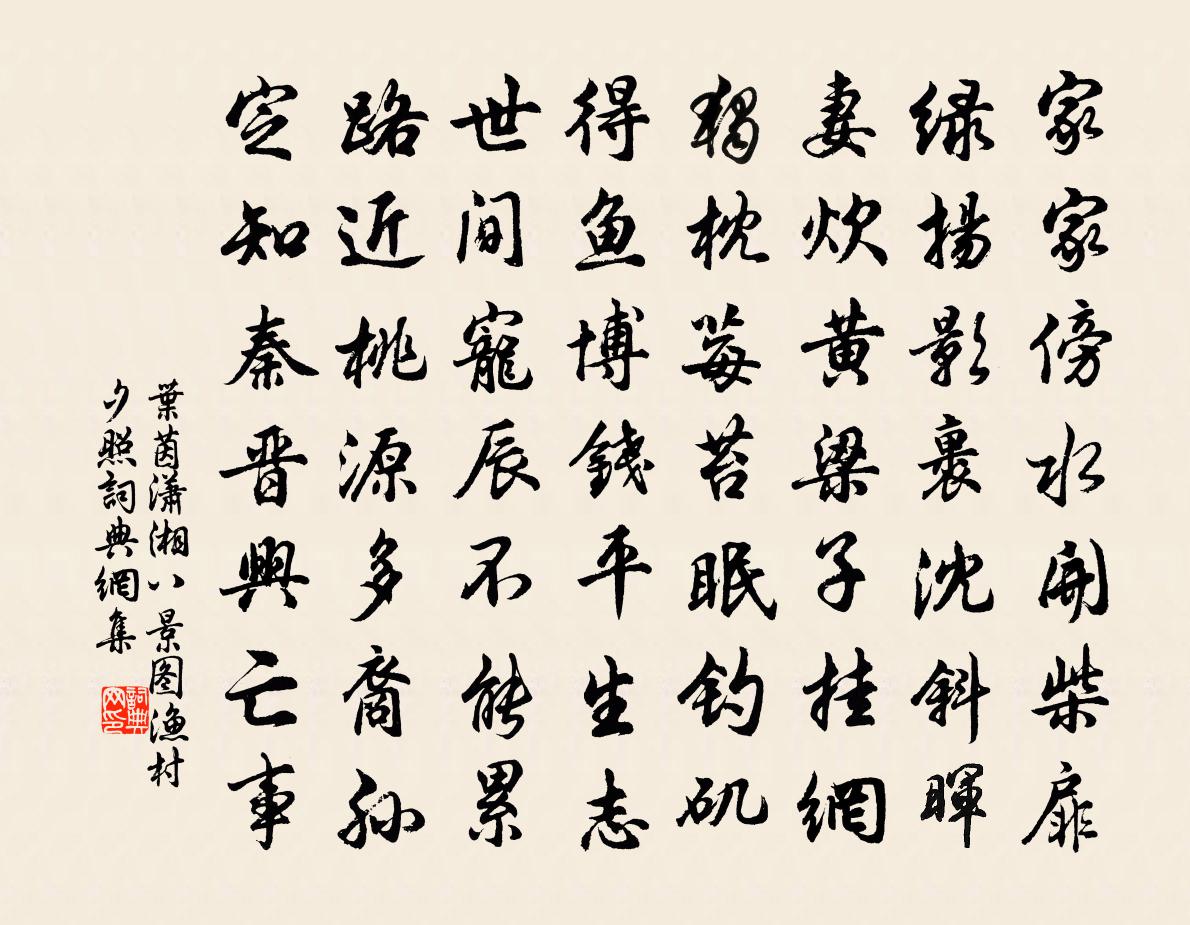 家家傍水開柴扉
綠揚影裹沈斜暉
妻炊黄粱子挂網
獨枕莓苔眠釣矶
得鱼博錢平生志
世间寵辰不能累
路近桃源多裔孙
定知秦晋興亡事
葉茵瀟湘八景图漁村
夕照詞典網集
詞典
网印